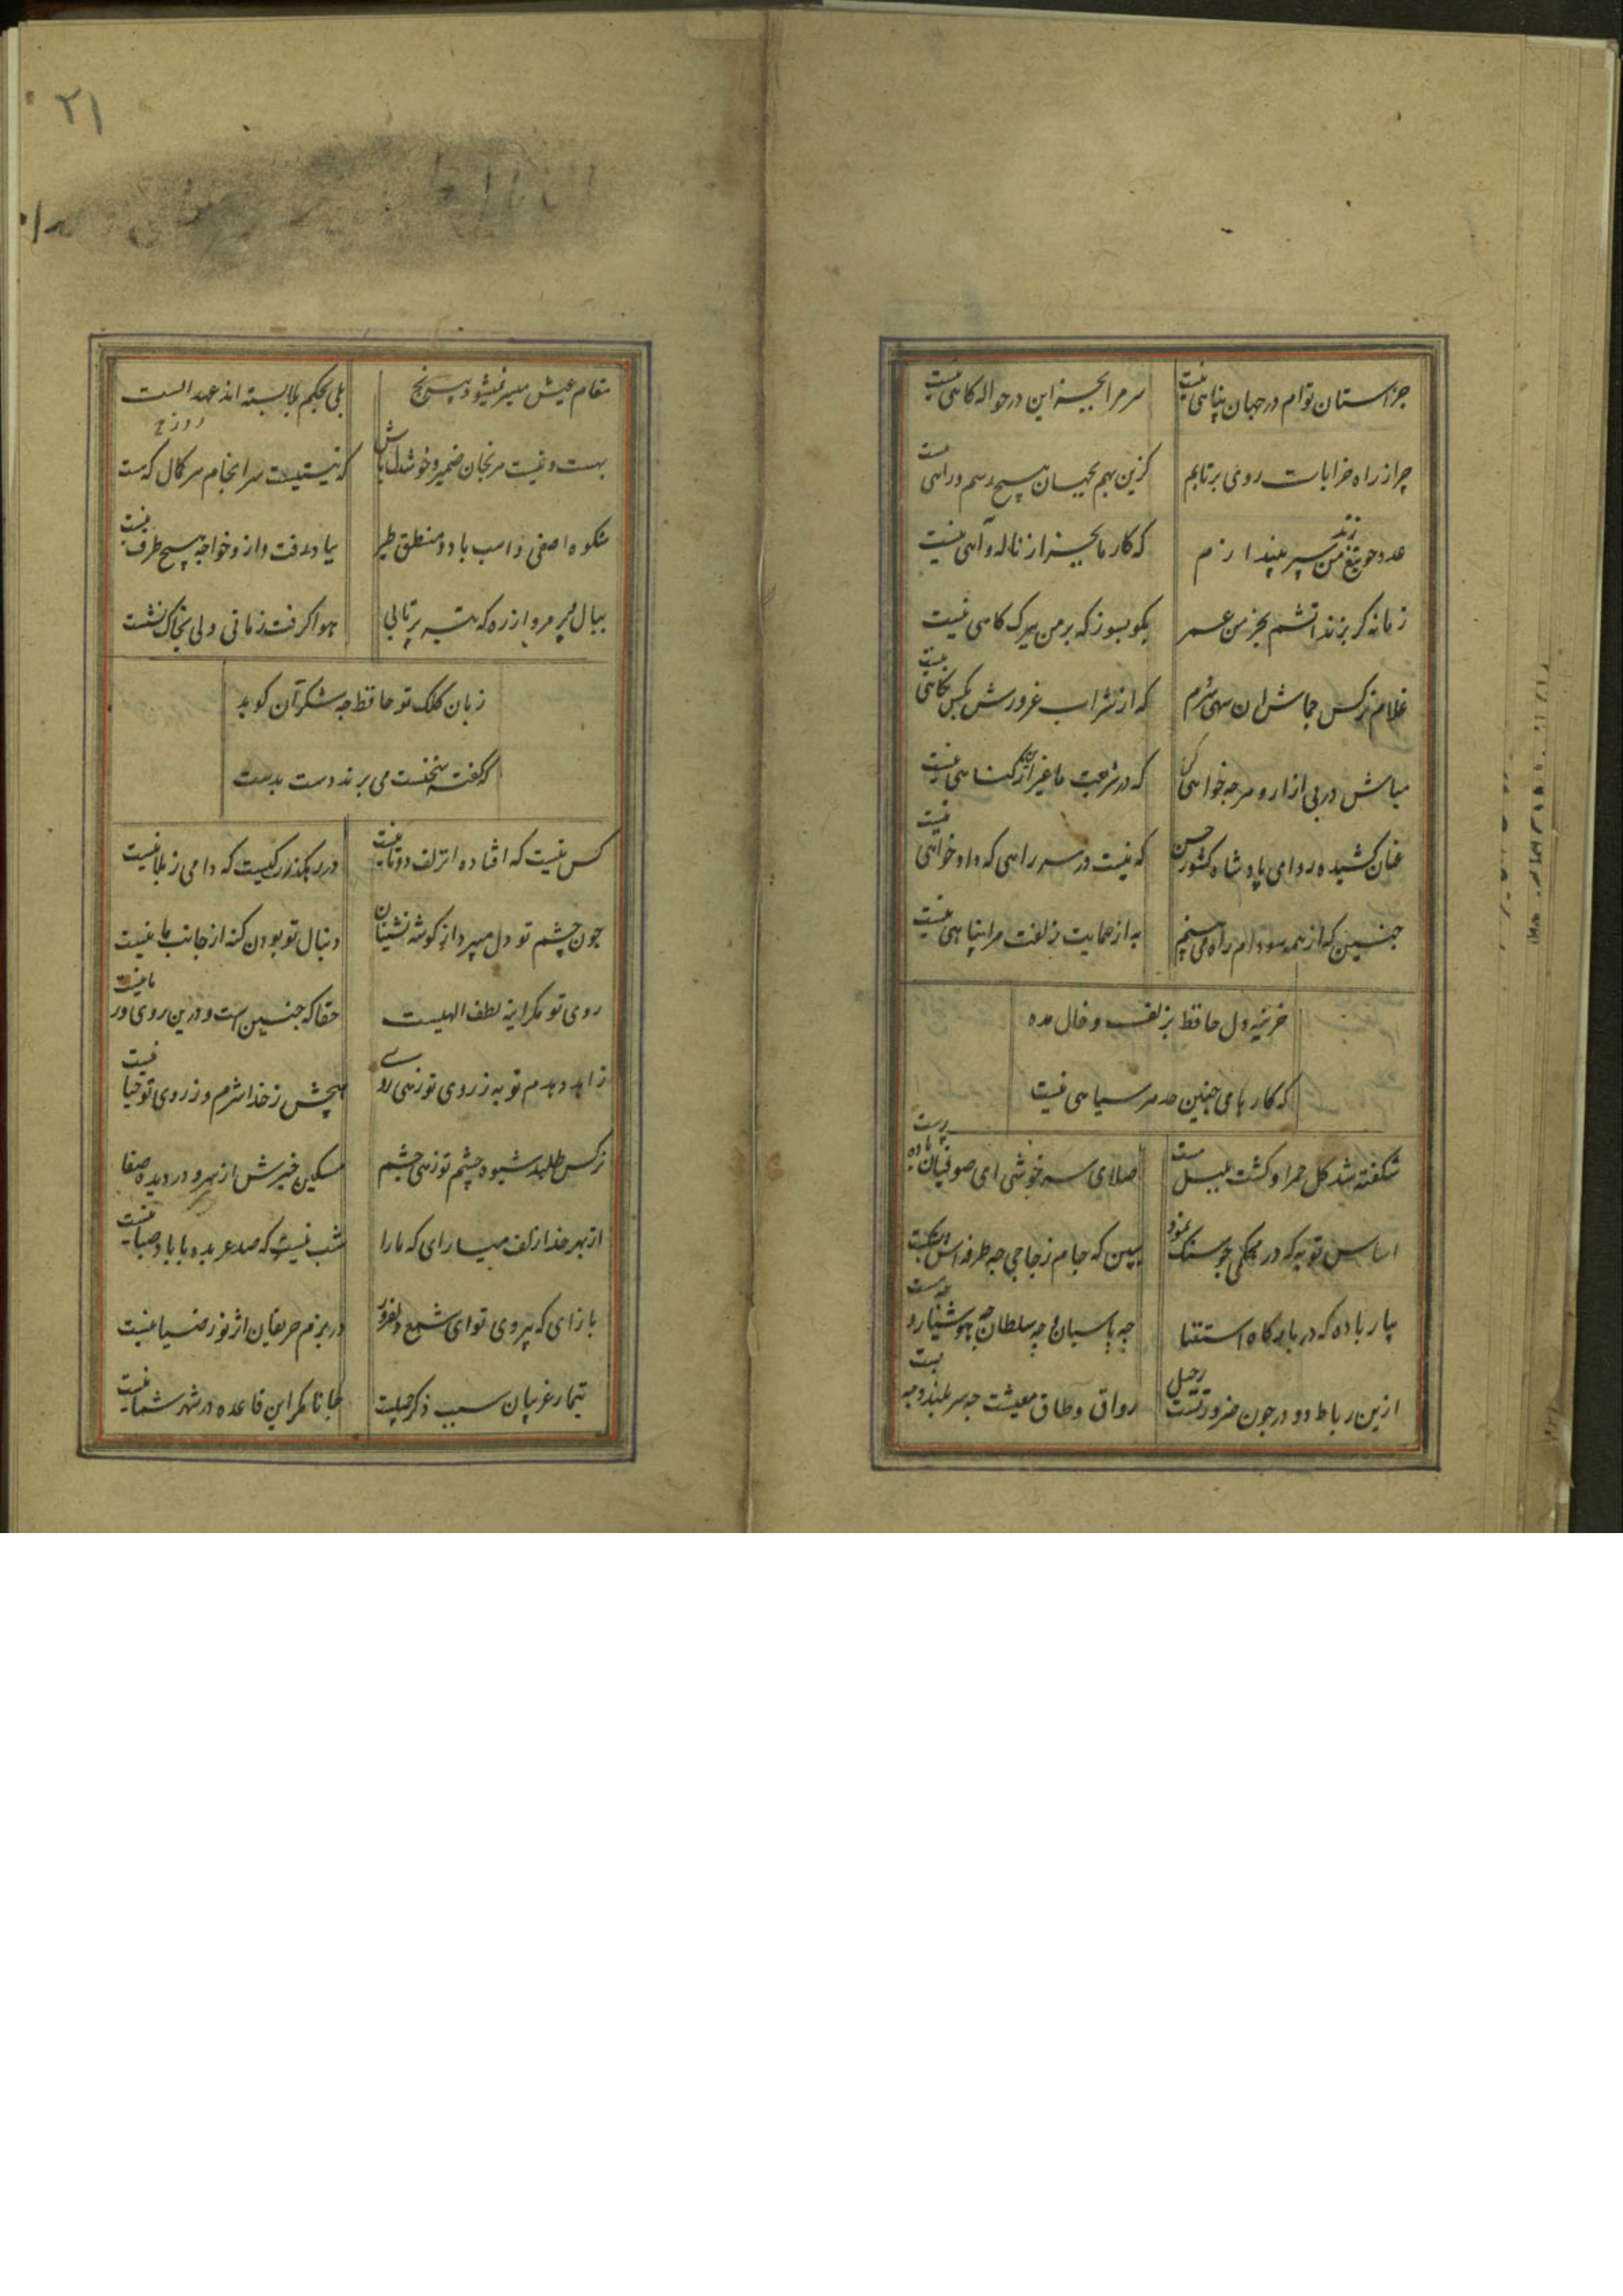 جز استان توام در جهان پناهی نیست
سر مرا بجز این در حواله کاهی نیست
چرا ز راه خرابات روی برتابم
کزین بهم بجهان هیچ رسم و راهی نیست
عدو چو تیغ زند من سپر بیندازم
که کار ما بجز از ناله و آهی نیست
زمانه کر بزند اتشم بخرمن عمر
بکو بسوز که بر من ببرک کاهی نیست
غلام نرکس جماش ان سهی سروم
که از شراب غرورش بکس نکاهی نیست
مباش در پی ازار و هرچه خواهی کن
که در شریعت ما غیر ازین کناهی نیست
عنان کشیده رو ای پادشاه کشور حسن
که نیست در سر راهی که دادخواهی نیست
چنین که از همه سو دام راه می بینم
به از حمایت زلفت مرا پناهی نیست
خزینه دل حافظ بزلف و خال مده
که کارهای چنین حد هر سیاهی نیست
شکفته شد کل حمرا و کشت بلبل مست
صلای سرخوشی ای صوفیان باده پرست
اساس توبه که در محکمی چو سنک نمود
ببین که جام زجاجی چه طرفه اش بشکست
بیار باده که در بارکاه استغنا
چه پاسبان و چه سلطان چه هوشیار و چه مست
ازین رباط دو در چون ضرورتست رحیل
رواق و طاق معیشت چه سربلند و چه پست
۲۱
مقام عیش میسر نمیشود بی رنج
بلی بحکم بلا بسته اند عهد الست
روزح
بهست و نیست مرنجان ضمیر و خوشدل باش
که نیستیست سرانجام هر کمال که هست
شکوه اصفی و اسب باد و منطق طیر
بباد رفت و از و خواجه هیچ طرف نبست
ببال و پر مرو از ره که تیر پرتابی
هوا کرفت زمانی ولی بخاک نشست
زبان کلک تو حافظ چه شکر آن کوید
که کفته سخنت می برند دست بدست
کس نیست که افتاده ان زلف دوتا نیست
در رهکذر کیست که دامی ز بلا نیست
چون چشم تو دل میبرد از کوشه نشینان
دنبال تو بودن کنه از جانب ما نیست
روی تو مکر اینه لطف الهیست
حقا که چنین است و درین روی و ریا نیست
زاهد دهدم توبه ز روی تو زهی روی
هیچش ز خدا شرم و ز روی تو حیا نیست
نرکس طلبد شیوه چشم تو زهی چشم
مسکین خبرش از سر و در دیده صفا
از بهر خدا زلف میارای که ما را
شب نیست که صد عربده با باد صبا نیست
بازای که بی روی تو ای شمع دلفروز
در بزم حریفان اثر نور ضیا نیست
تیمار غریبان سبب ذکر جمیلت
جانا مکر این قاعده در شهر شما نیست